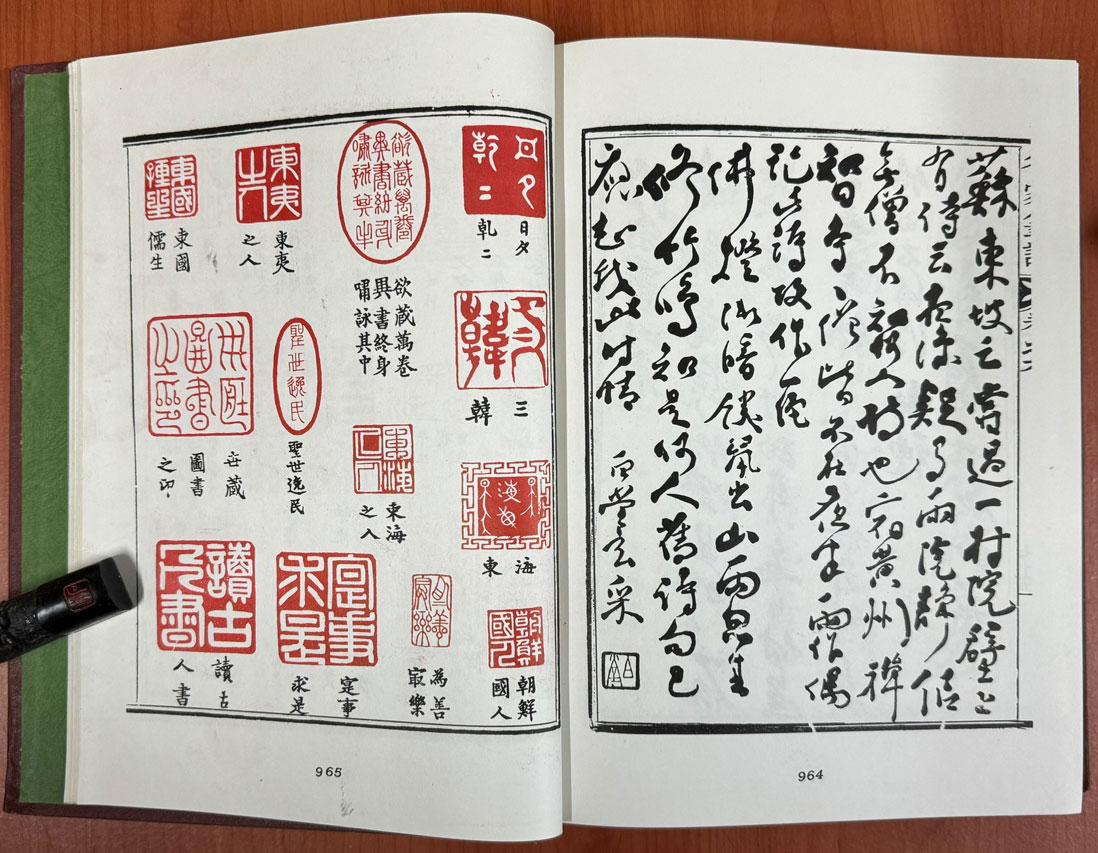 蘇東坡云嘗過一村院壁上
有詩云夜涼疑有雨院靜似
無僧不知何人詩也宿黃州禪
智寺寺僧皆不在夜半雨作偶
記此詩故作一絕
佛燈漸暗饑鼠出山雨忽來
修竹鳴知是何人舊詩句已
應知我此時情
964
日夕
乹二
三
韓
海
東
朝鮮
國人
欲蔵萬卷
異書終身
嘯詠其中
東海
之人
為善
㝡樂
東夷
之人
聖世逸民
寔事
求是
東國
儒生
蔵
圖書
之印
讀古
人書
965